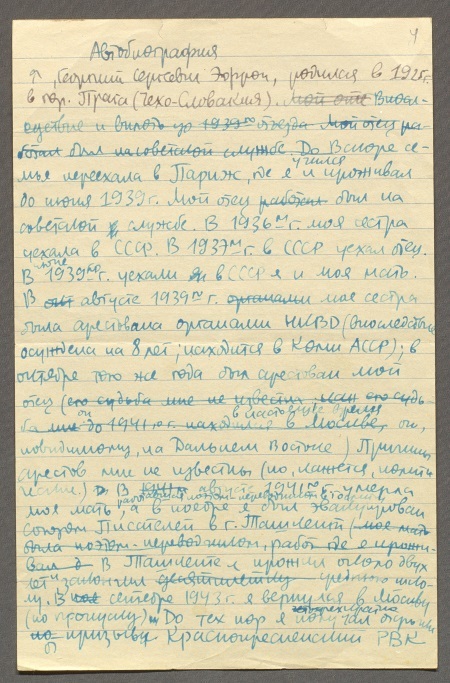 4
Автобиография
Я, Георгий Сергеевич Эфрон, родился в 1925 г.
в гор. Прага (Чехо-Словакия). Мой отец Впосл-
едствие и вплоть до 1939 го отъезда Мой отец ра-
ботал был на советской службе До Вскоре се-
мья переехала в Париж, где я учился и проживал
до июня 1939 г. Мой отец работал был на
советской службе. В 1936 м г. моя сестра
уехала в СССР. В 1937 м г. в СССР уехал отец.
В июне 1939 го г. уехали в СССР я и моя мать.
В августе 1939 г. органами моя сестра
была арестована органами НКВD (впоследствие
осуждена на 8 лет; находится в Коми АССР); в
октябре того же года был арестован мой
отец (его судьба мне не известна его судь-
ба мне до 1941 го г. он находился в Москве, в настоящее время он,
повидимому, на Дальнем Востоке) Причины
арестов мне не известны (но, кажется, полити-
ческие.) В августе 1941 г. умерла
моя мать, а в ноябре я был эвакуирован
союзом Писателей в г. Ташкент (моя мать
была поэтом-переводчиком, где я прожи-
вал В Ташкенте я прожил около двух
лет и закончил десятилетку среднюю шко-
лу. В сентябре 1943 г. я вернулся в Москву
(по пропуску) До тех пор я получал отсрочки
по призыву Краснопресненский РВК